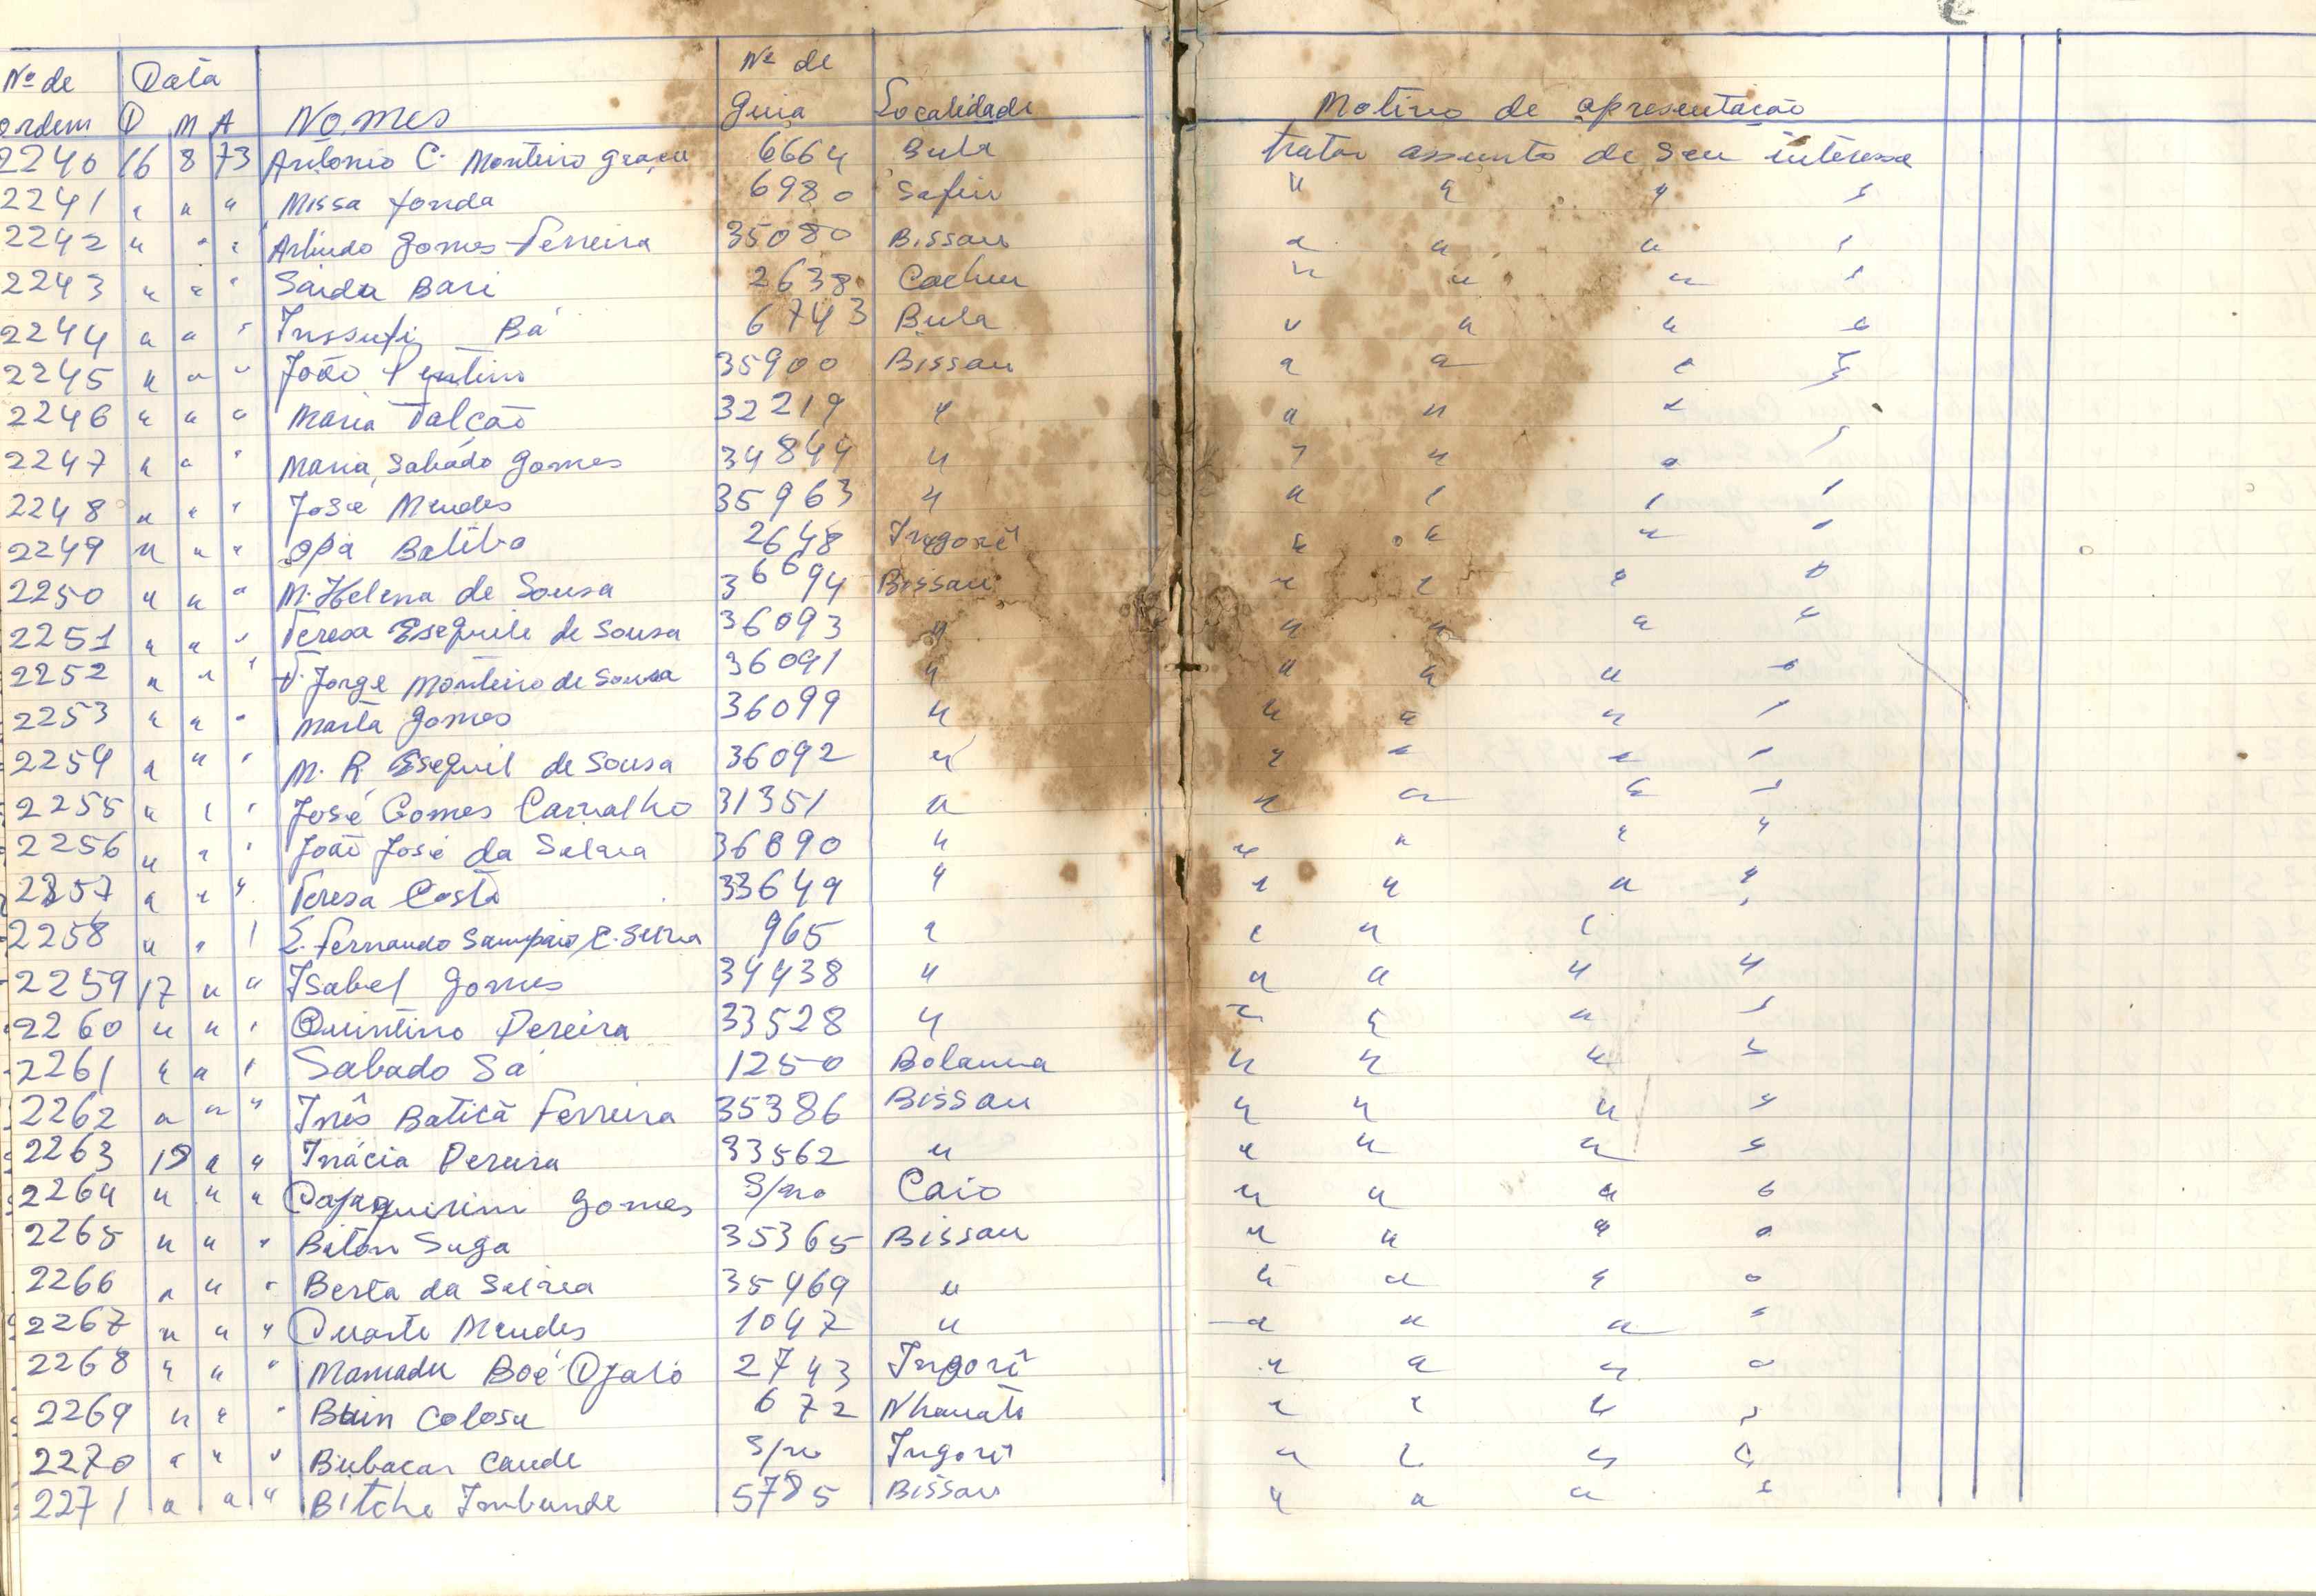 Nº de Data Nº de
ordem D M A Nomes Guia Localidade Motivo de apresentação
2240 16 8 73 António C. Monteiro 6664 Bula tratar assunto de seu interesse
2241 " " " Missa 6980 Safim " " " "
2242 " " " Arlindo Gomes Ferreira 35080 Bissau " " " "
2243 " " " Saidu Bari 2638 Cacheu " " " "
2244 " " " Inssufi Bá 6743 Bula " " " "
2245 " " " João 35900 Bissau " " " "
2246 " " " Maria Falcão 32219 " " " "
2247 " " " Maria Sabádo Gomes 34844 " " " " "
2248 " " " José Mendes 35963 " " " " "
2249 " " " Opa Batiba 2648 Ingoré " " " "
2250 " " " M. Helena de Sousa 36694 Bissau " " " "
2251 " " " Teresa Esequile de Sousa 36093 " " " " "
2252 " " " Jorge Monteiro de Sousa 36091 " " " " "
2253 " " " Marta Gomes 36099 " " " " "
2254 " " " M. R. Esequil de Sousa 36092 " " " " "
2255 " " " José Gomes Carvalho 31351 " " " " "
2256 " " " João José da Silva 36890 " " " " "
2257 " " " Teresa Costa 33649 " " " " "
2258 " " " Fernando Sampaio 965 " " " "
2259 17 " " Isabel Gomes 34438 " " " " "
2260 " " " Quintino Pereira 33528 " " " " "
2261 " " " Sabado Sá 1250 Bolama " " " "
2262 " " " Inês Baticã Ferreira 35386 Bissau " " " "
2263 " " Inácia Pereira 33562 " " " " "
2264 " " " Gomes S/no Caio " " " "
2265 " " " Biton Suga 35365 Bissau " " " "
2266 " " " Berta da Silva 35469 " " " " "
2267 " " " Duarte Mendes 1047 " " " " "
2268 " " " Mamadu Boé Djaló 2743 Ingoré " " " "
2269 " " " 672 " " " "
2270 " " " Bubacar Cande S/no Ingoré " " " "
2271 " " " Bitche Imbunde 5785 Bissau " " " "